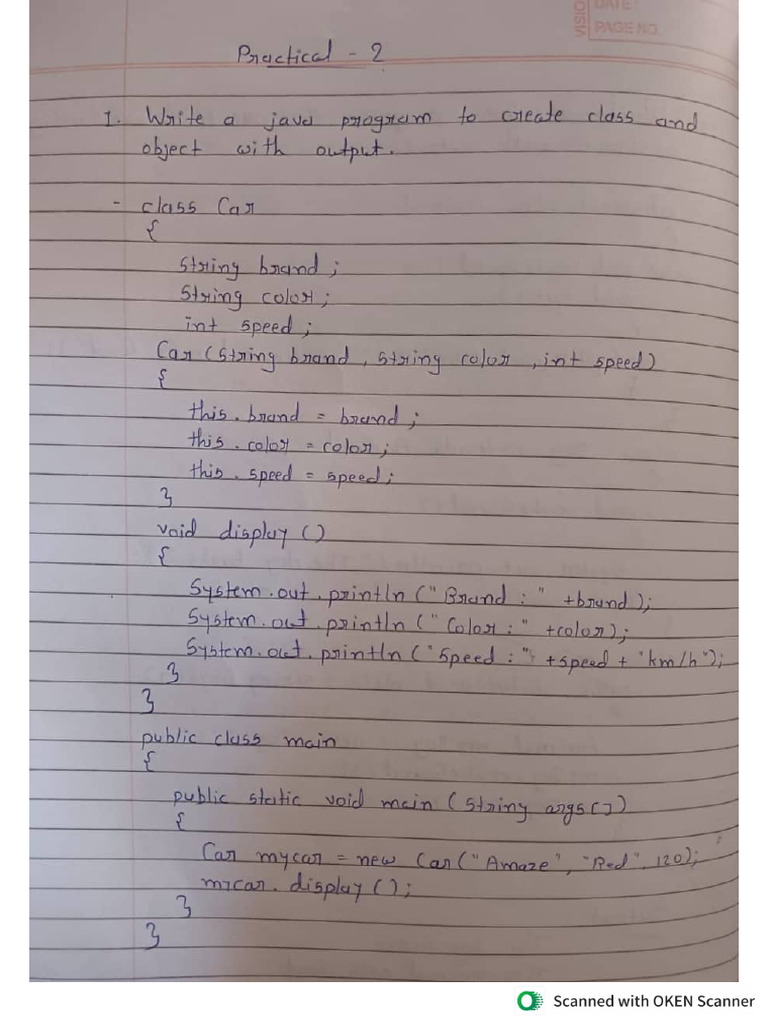 VISIO
DATE:
PAGE NO.
Practical - 2
1. Write a java program to create class and
object with output.
- class Car
{
String brand ;
String color ;
int speed ;
Car (String brand , String color , int speed)
{
this . brand = brand ;
this . color = color ;
this . speed = speed ;
}
void display ()
{
System.out.println ("Brand : " +brand);
System.out.println ("Color : " +color);
System.out.println ("Speed : " +speed + "km/h");
}
}
public class main
{
public static void main (String args[])
{
Car mycar = new Car("Amaze", "Red", 120);
mycar . display ();
}
}
Scanned with OKEN Scanner